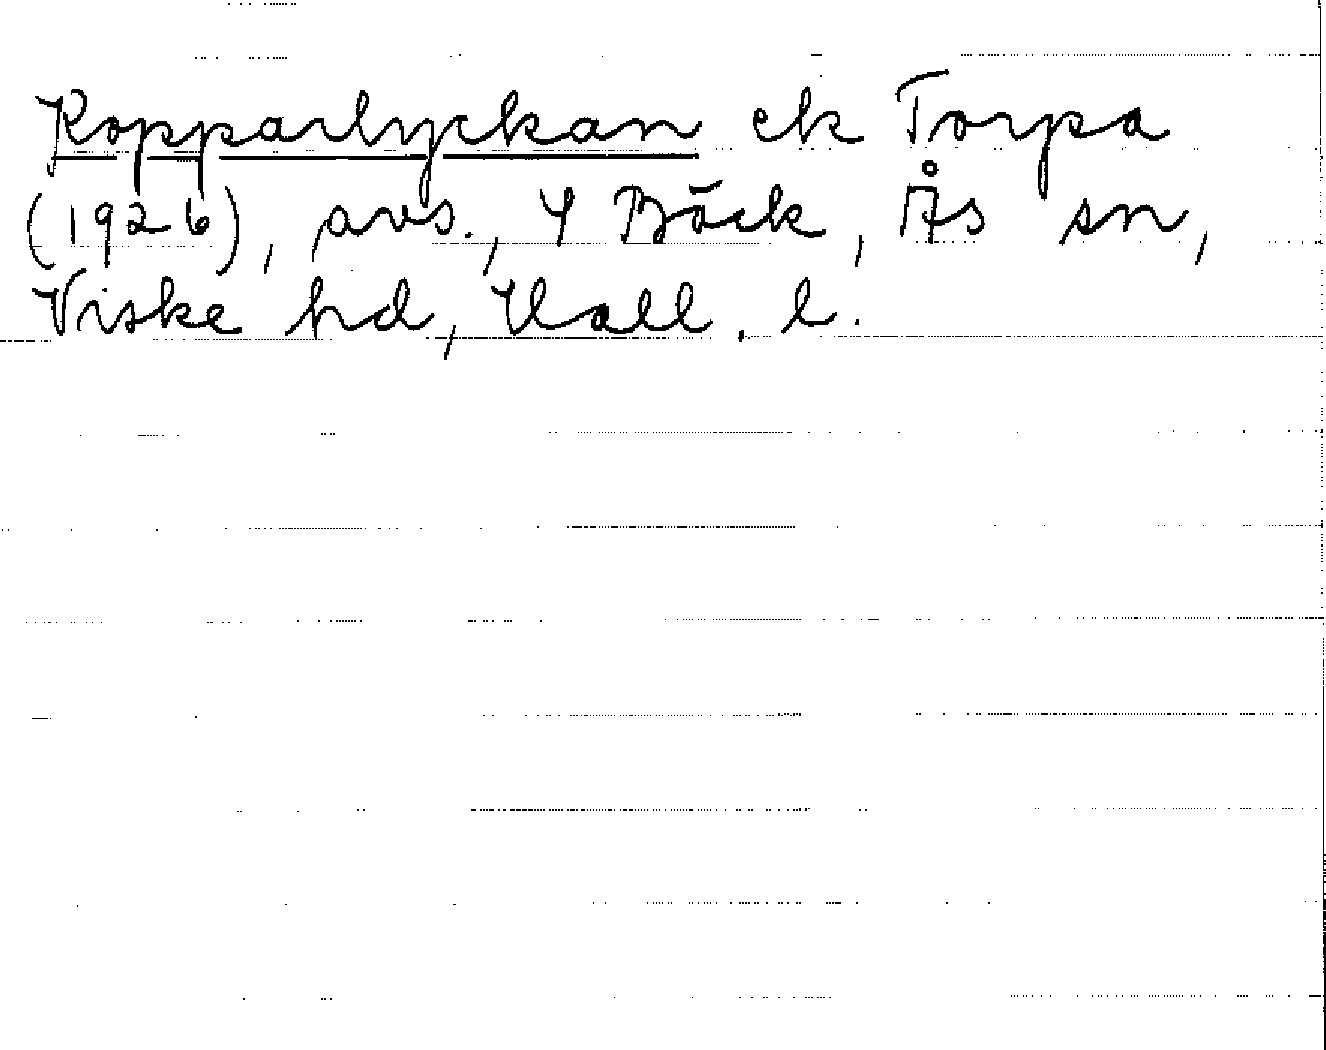 Kopparlyckan ek Torpa
(1926), avs., Y Bäck, Ås sn,
Viske hd, Hall. l.